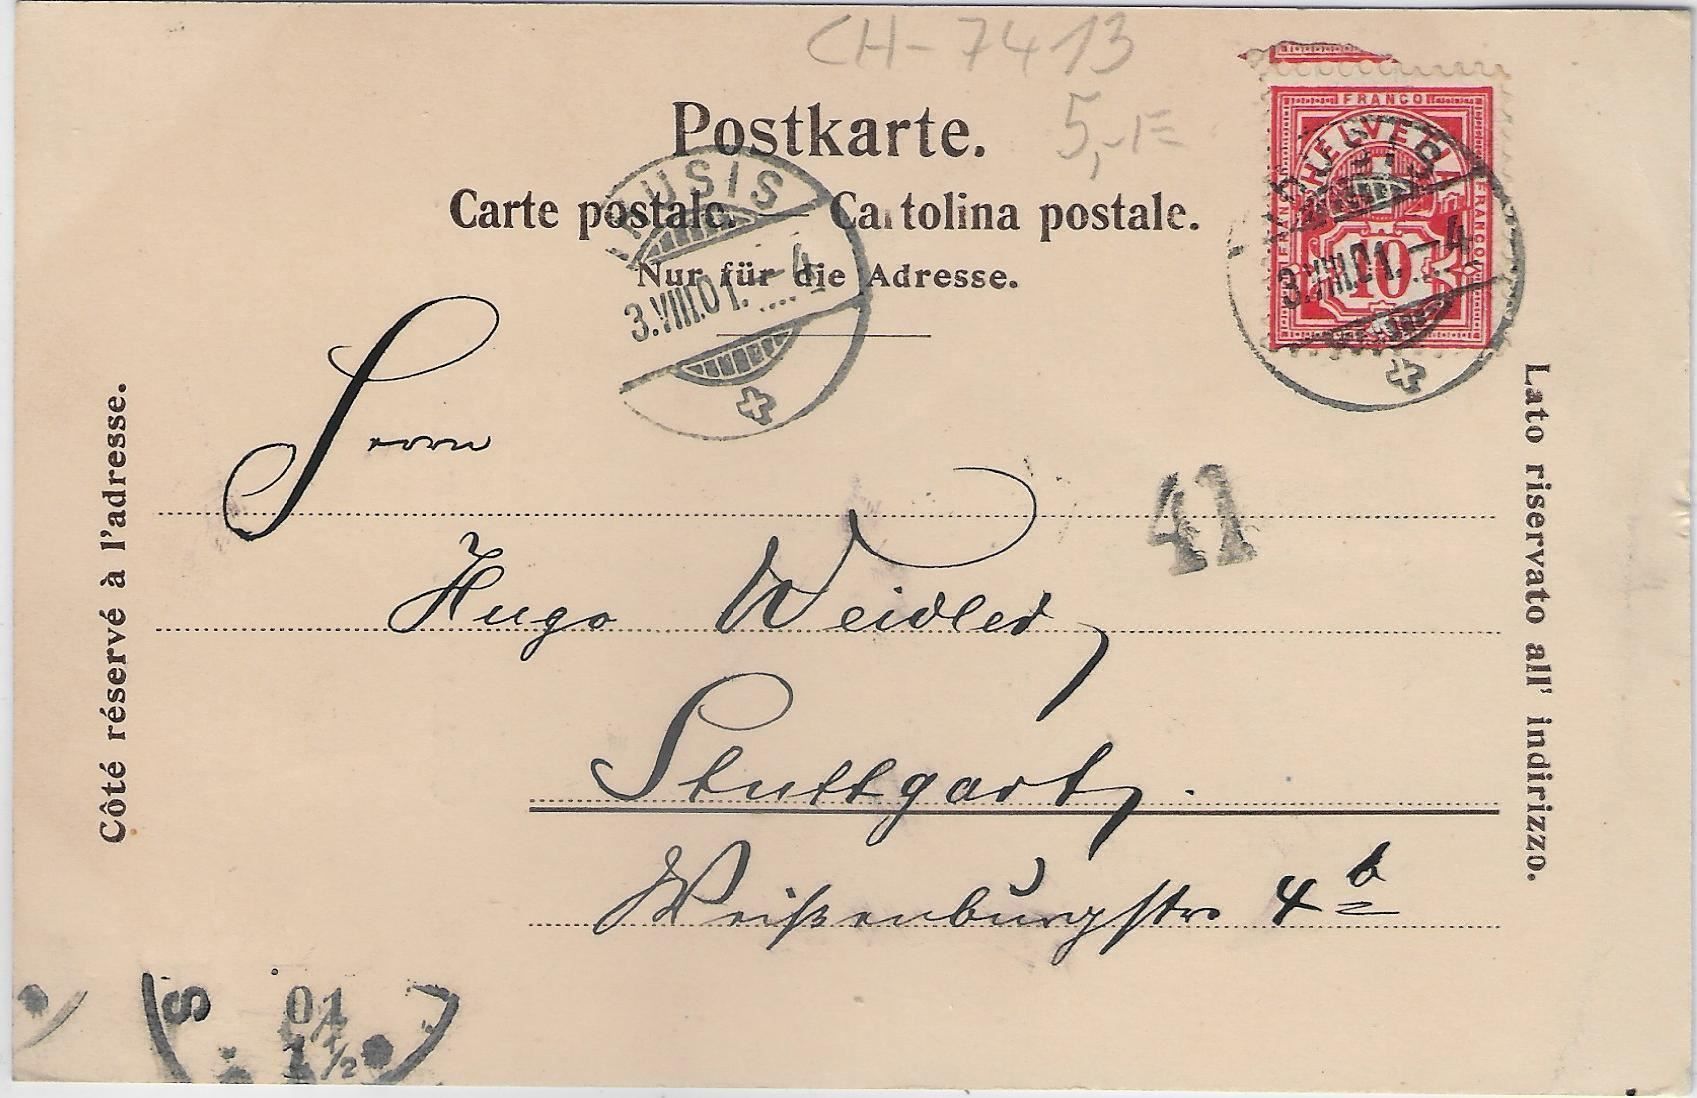 CH-7413
Postkarte.
5,-
Carte postale. — Cartolina postale.
Nur für die Adresse.
THUSIS
3.VIII.01.-4
FRANCO
HELVETIA
FRANCO
FRANCO
10
THUSIS
3.VIII.01.-4
Côté réservé à l'adresse.
Lato riservato all' indirizzo.
Herrn
41
Hugo Weidler,
Stuttgart,
Weißenburgstr 4b
S
01
1½